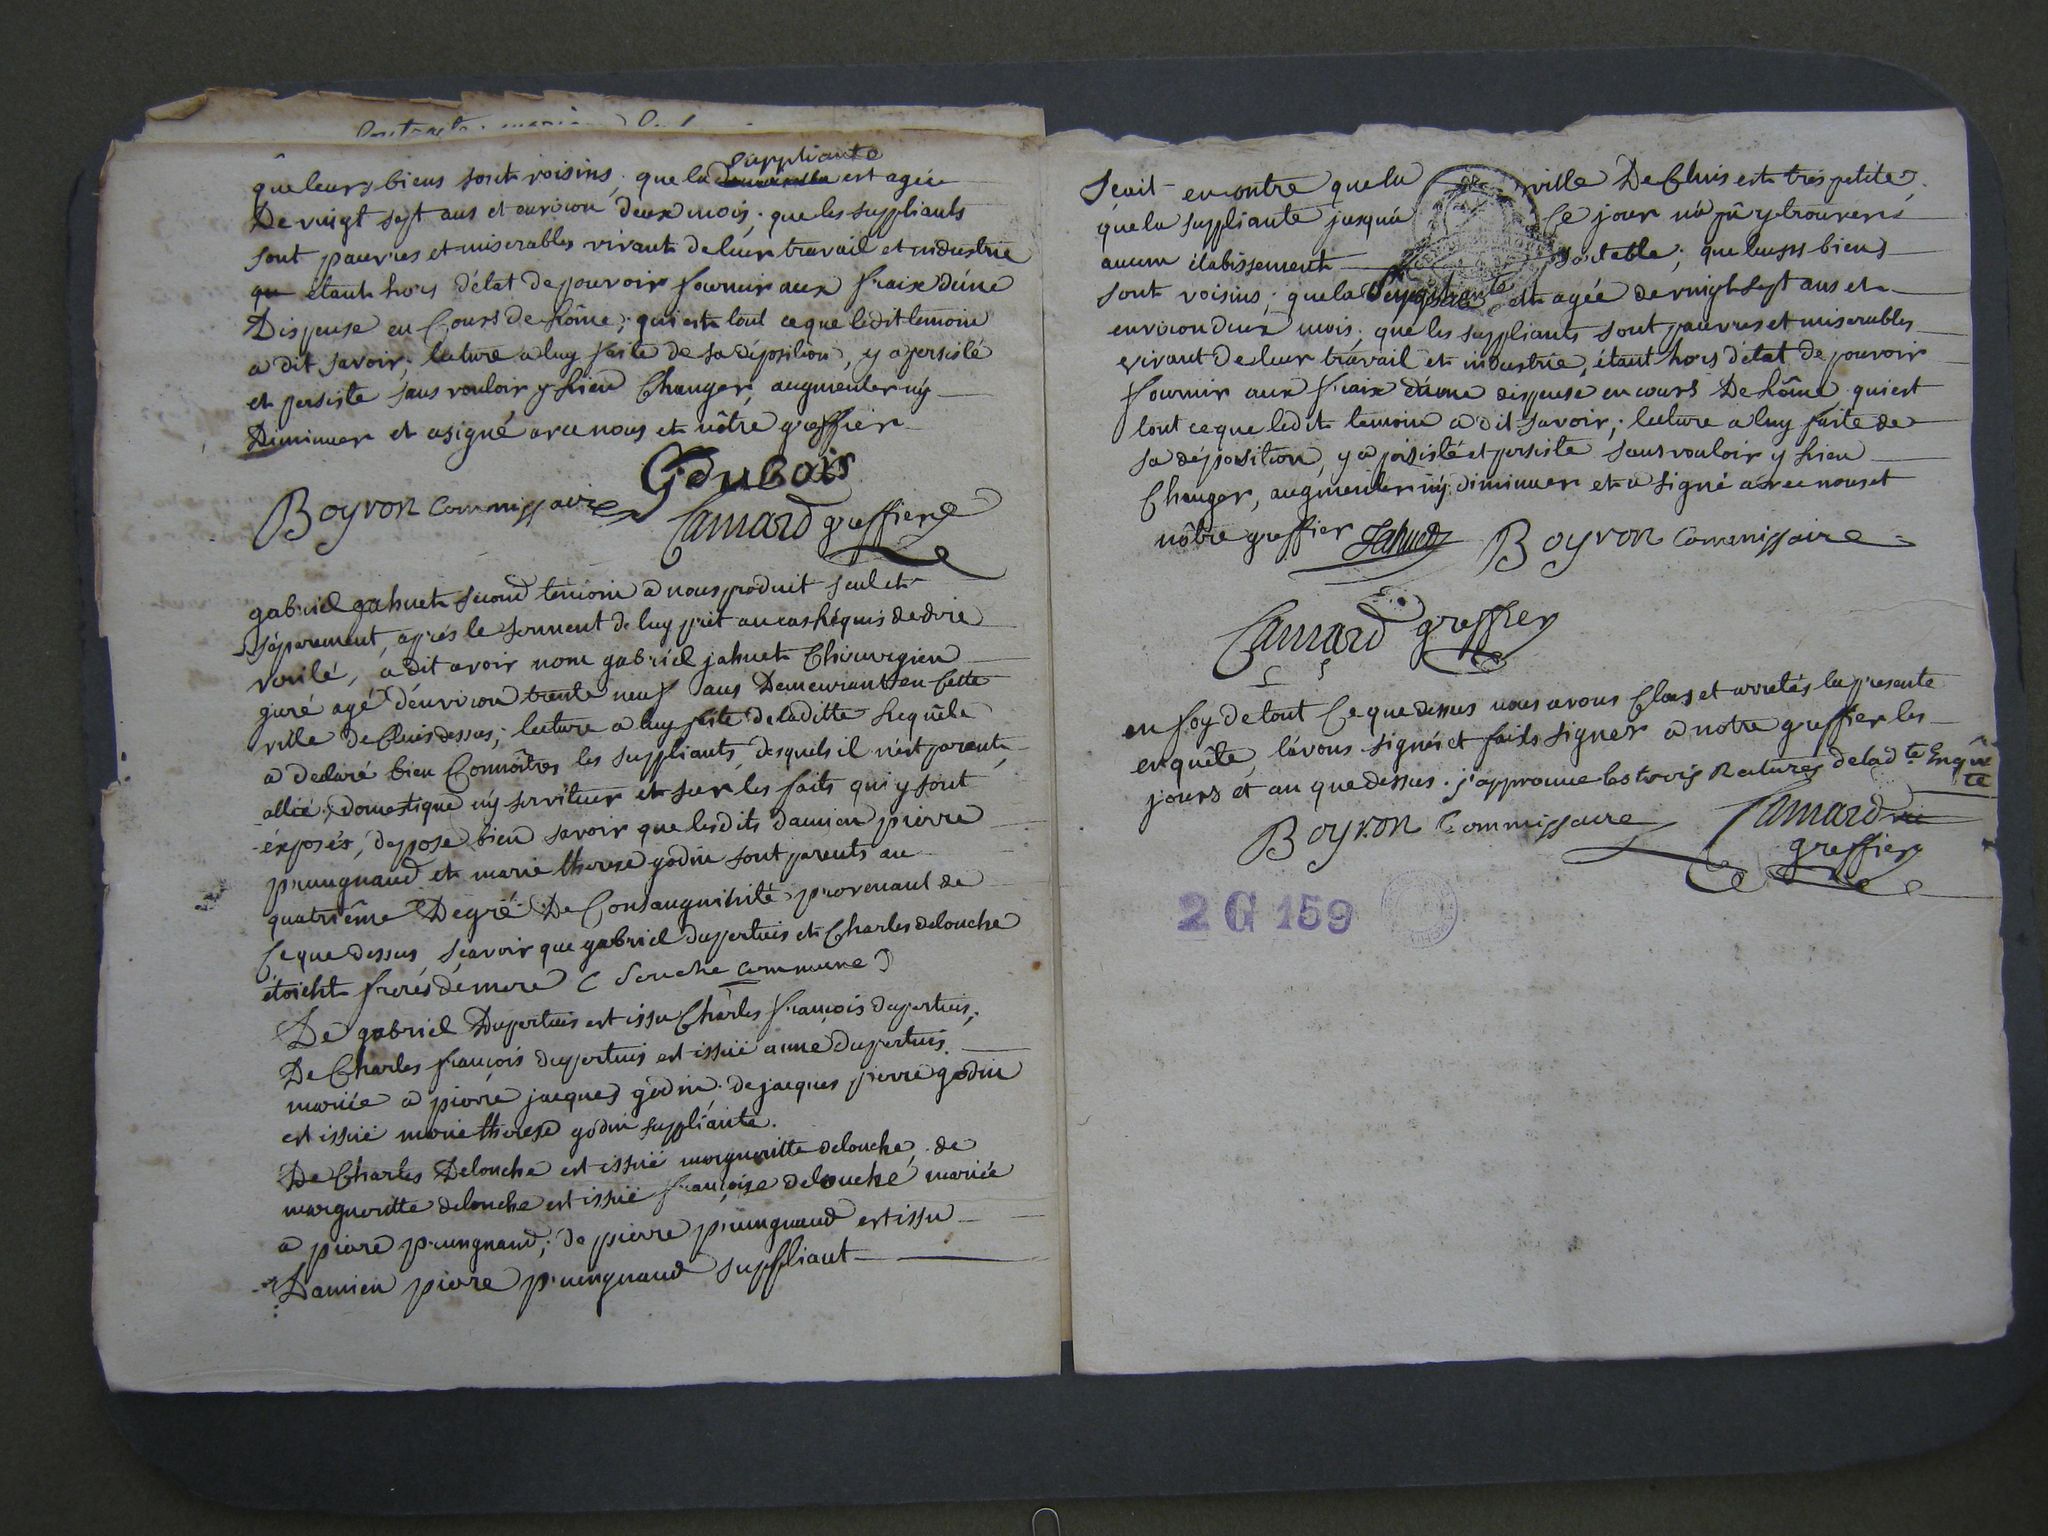 que leurs biens sont voisins, que la suppliante est agée
De vingt sept ans et environ deux mois. que les suppliants
sont pauvres et miserables vivant de leur travail et industrie
étant hors d'état de pouvoir fournir aux fraix d'une
Dispense en Cours de Rôme; qui est tout ce que ledit temoin
a dit savoir; lecture a luy faite de sa déposition, y a persisté
et persiste sans vouloir y Rien Changer, augmenter ny
Diminuer et a signé avec nous et nôtre greffier
G dubois
Boyron Commissaire
Camard greffier
gabriel gahuet second temoin a nous produit seul et
séparement, aprés le serment de luy prit au cas Réquis de dire
verité, a dit avoir nom gabriel jahuet Chirurgien
juré agé d'environ trente neuf ans Demeurant en Cette
ville de Cluis dessus; lecture a luy faite de laditte Requête
a declaré bien Connoitres les suppliants, desquels il n'est parent,
allié, Domestique ny serviteur et sur les faits qui y sont
éxposés, dépose bien savoir que lesdits damien pierre
prungnaud et marie therese godin sont parents au
quatriême Degré De Consanguinité provenant de
Ce que dessus, sçavoir que gabriel dupertuis et Charles delouche
étoient freres de mere ( Souche Commune )
De gabriel Dupertuis est issu Charles françois dupertuis,
De Charles françois dupertuis est issuë anne dupertuis
mariée a pierre jacques godin; de jacques pierre godin
est issuë marie therese godin suppliante.
De Charles Delouche est issuë margueritte delouche, de
margueritte delouche est issuë françoise delouche mariée
a piere prungnaud; de pierre prungnaud est issu
Damien piere prungnaud suppliant
Sçait en outre que la ville De Cluis est tres petite.
que la suppliante jusqu'a Ce jour n'a pû y trouver
aucun étabissement sortable; que leurs biens
sont voisins; que la suppliante est agée de vingt sept ans et
environ deux mois; que les suppliants sont pauvres et miserables
vivant de leur travail et industrie, étant hors d'état de pouvoir
fournir aux fraix d'une dispense en cours De Rôme qui est
tout ce que ledit temoin a dit savoir; lecture a luy faite de
sa déposition, y a persisté et persiste sans vouloir y Rien
Changer, augmenter ny diminuer et a signé avec nous et
nôtre greffier Jahuet Boyron Commissaire
Camard greffier
en foy de tout Ce que dessus nous avons Clos et arretés la presente
enquête, l'avons signés et faits signer a notre greffier les
jours et an que dessus. j'approuve les trois Ratures de lad te Enquê
te
Boyron Commissaire Camard
greffier
2 G 159